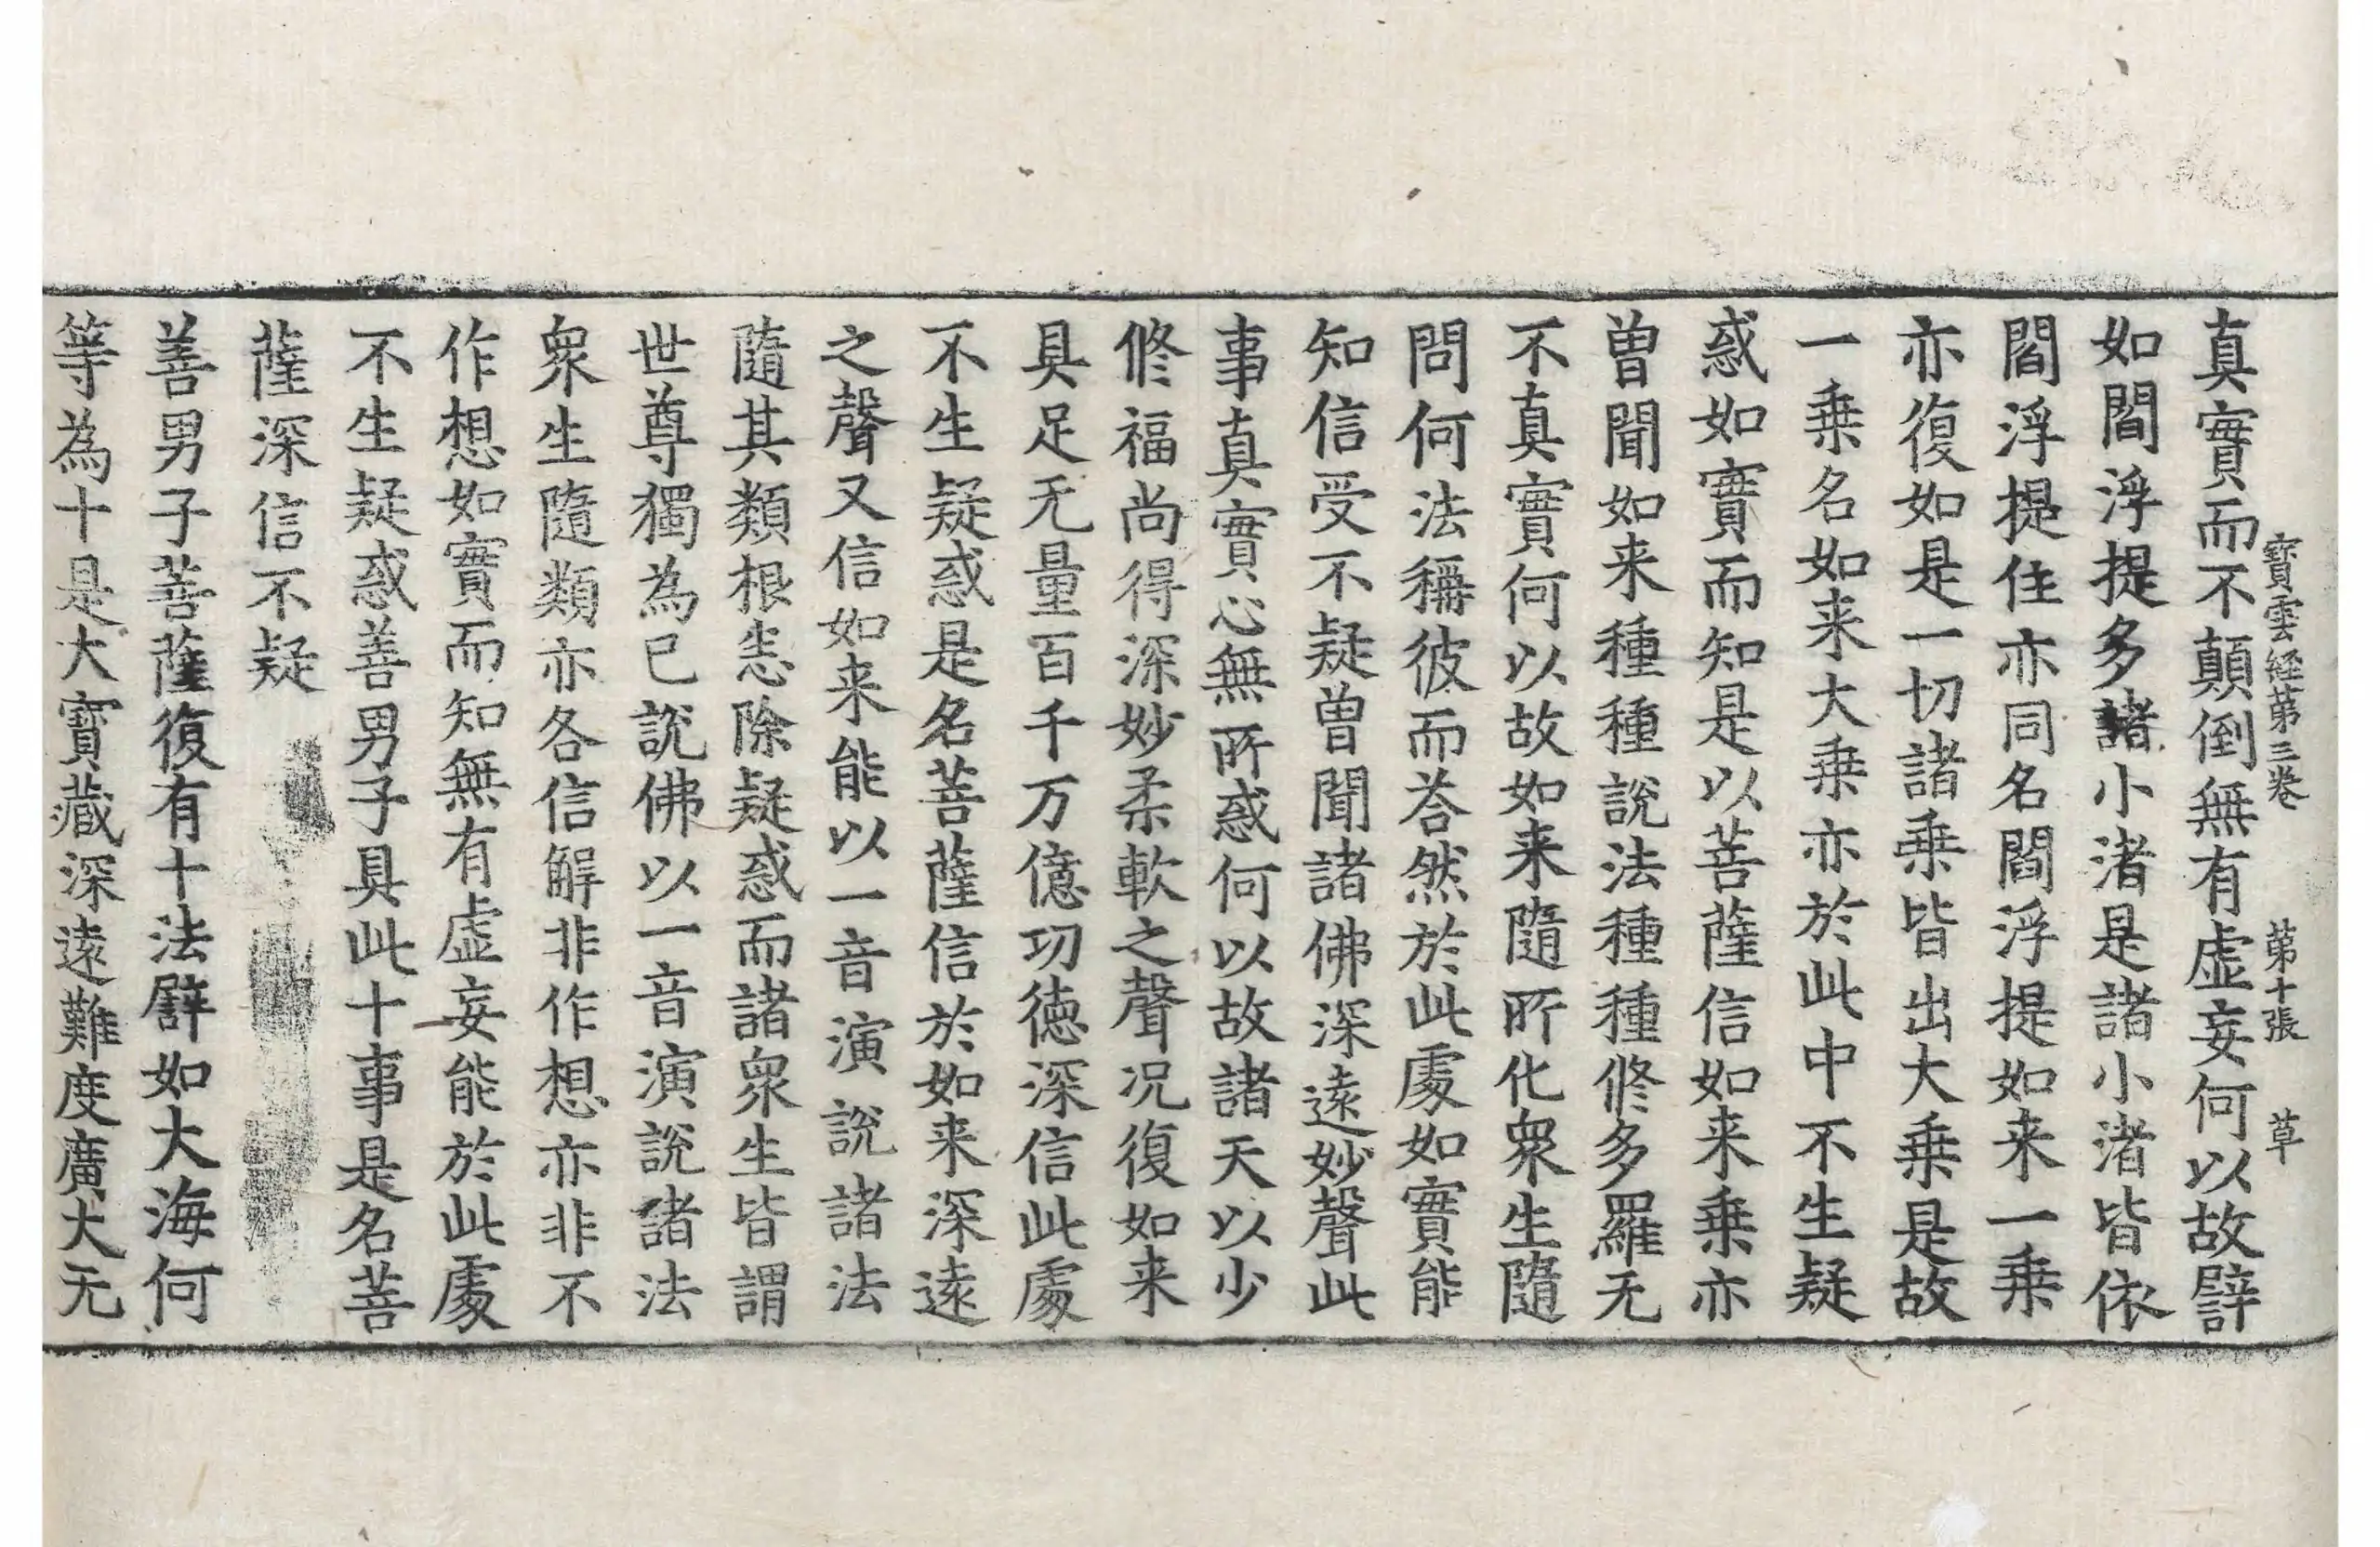 寳雲経第三巻　第十張　草
真實而不顛倒無有虚妄何以故譬
如閻浮提多諸小渚是諸小渚皆依
閻浮提住亦同名閻浮提如来一乗
亦復如是一切諸乗皆出大乗是故
一乗名如来大乗亦於此中不生疑
惑如實而知是以菩薩信如来乗亦
曽聞如来種種說法種種修多羅无
不真實何以故如来隨所化衆生隨
問何法稱彼而荅然於此處如實能
知信受不疑曽聞諸佛深遠妙聲此
事真實心無所惑何以故諸天以少
修福尚得深妙柔軟之聲况復如来
具足无量百千万億功徳深信此處
不生疑惑是名菩薩信於如来深遠
之聲又信如来能以一音演說諸法
隨其類根悉除疑惑而諸衆生皆謂
世尊獨為已說佛以一音演說諸法
衆生隨類亦各信解非作想亦非不
作想如實而知無有虚妄能於此處
不生疑惑善男子具此十事是名菩
薩深信不疑
善男子菩薩復有十法譬如大海何
等為十是大寳藏深遠難度廣大无